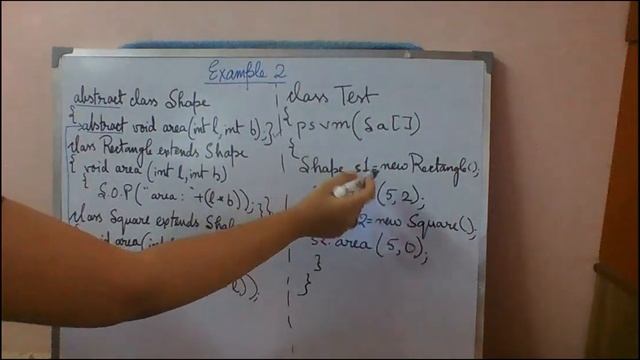 Example 2
abstract class Shape
{ abstract void area(int l, int b); }
class Rectangle extends Shape
{ void area (int l, int b)
{ S.O.P("area: "+(l*b)); } }
class Square extends Sha
void area(int
));
class Test
{ psvm(Sa[])
{
Shape s1=new Rectangle();
(5,2);
2=new Square();
s2.area (5,0);
}
}